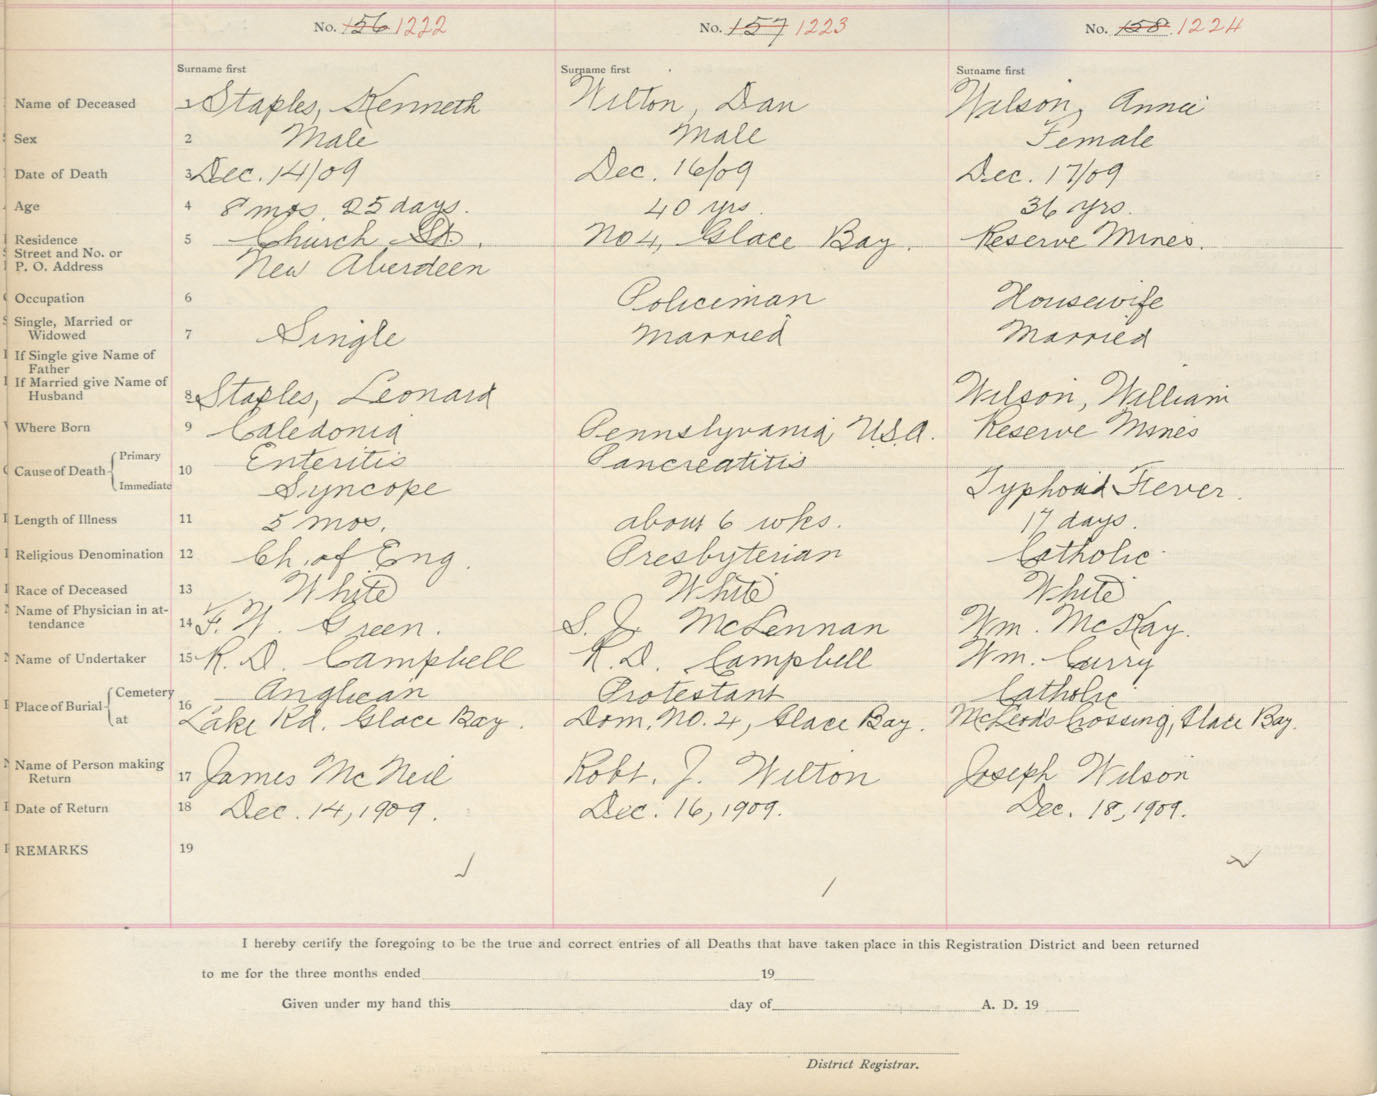 No. 156 1222 No. 157 1223 No. 158 1224
Surname first Surname first Surname first
Name of Deceased 1 Staples, Kenneth Wilton, Dan Wilson, Annie
Sex 2 Male Male Female
Date of Death 3 Dec. 14/09 Dec. 16/09 Dec. 17/09
Age 4 8 mos. 25 days. 40 yrs. 36 yrs.
Residence 5 Church St. No 4, Glace Bay. Reserve Mines.
Street and No. or
P. O. Address New Aberdeen
Occupation 6 Policeman Housewife
Single, Married or
Widowed 7 Single Married Married
If Single give Name of
Father
If Married give Name of
Husband 8 Staples, Leonard Wilson, William
Where Born 9 Caledonia Pennslyvania, U.S.A. Reserve Mines
Cause of Death Primary 10 Enteritis Pancreatitis
Immediate Syncope Typhoid Fever.
Length of Illness 11 5 mos. about 6 wks. 17 days.
Religious Denomination 12 Ch. of Eng. Presbyterian Catholic
Race of Deceased 13 White White White
Name of Physician in at-
tendance 14 F. W. Green. S. J. McLennan Wm. McKay.
Name of Undertaker 15 R. D. Campbell R. D. Campbell Wm. Curry
Place of Burial Cemetery 16 Anglican Protestant Catholic
at Lake Rd. Glace Bay. Dom. No. 4, Glace Bay. McLeods Crossing, Glace Bay.
Name of Person making
Return 17 James McNeil Robt. J. Wilton Joseph Wilson
Date of Return 18 Dec. 14, 1909. Dec. 16, 1909. Dec. 18, 1909.
REMARKS 19
I hereby certify the foregoing to be the true and correct entries of all Deaths that have taken place in this Registration District and been returned
to me for the three months ended 19
Given under my hand this day of A. D. 19
District Registrar.